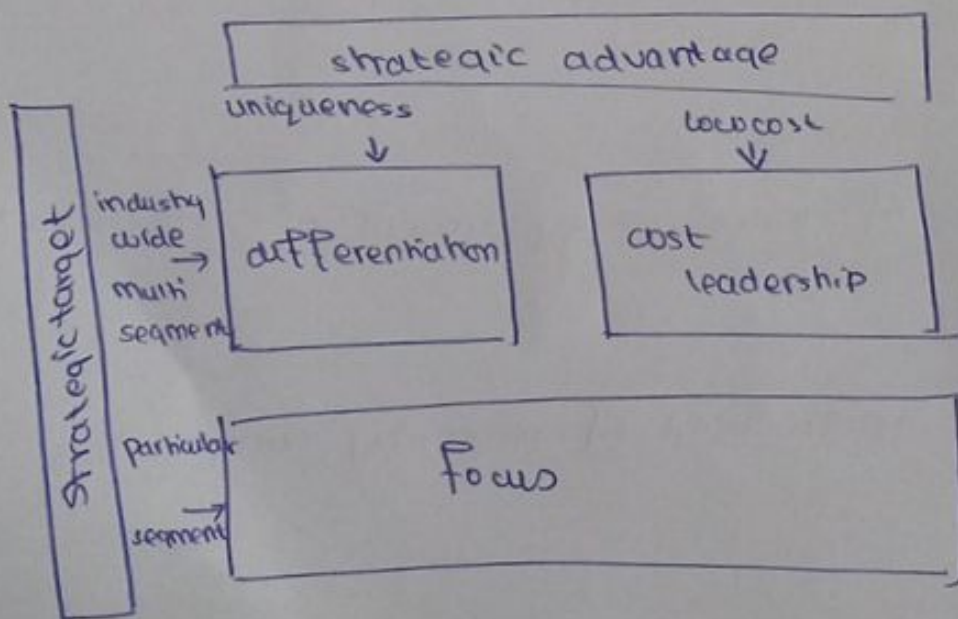 strategic advantage
uniqueness
low cost
Strategic target
industry
wide
multi
segment
differentiation
cost
leadership
particular
segment
focus